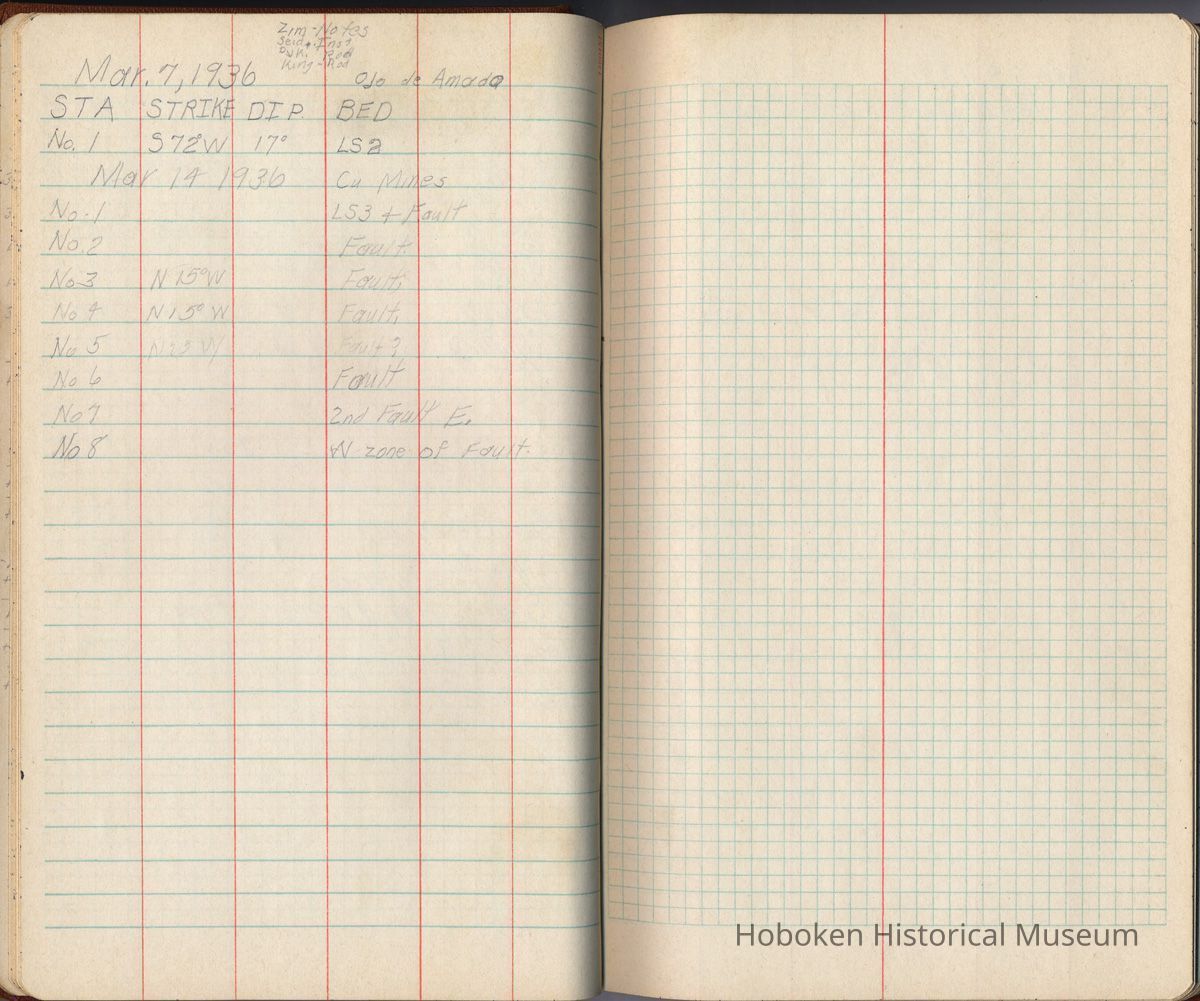 Zim-Notes
Seid. Inst
Rod
King-Rod
Mar. 7, 1936 Ojo de Amado
STA STRIKE DIP. BED
No. 1 S 72°W 17° LS2
Mar 14 1936 Cu Mines
No. 1 LS3 + Fault
No. 2 Fault.
No 3 N 15°W Fault,
No 4 N 15° W Fault,
No 5 Fault?
No 6 Fault
No 7 2nd Fault E.
No 8 W zone of Fault.
Hoboken Historical Museum